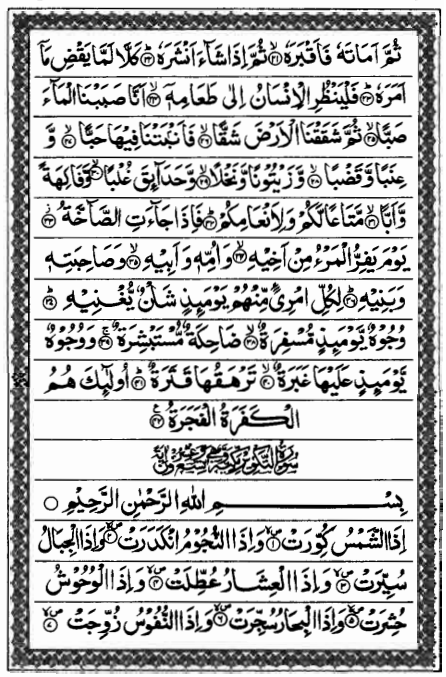 ثُمَّ اَمَاتَهٗ فَاَقْبَرَهٗ ﴿۲۱﴾ ثُمَّ اِذَا شَآءَ اَنْشَرَهٗ ﴿۲۲﴾ كَلَّا لَمَّا يَقْضِ مَاۤ
اَمَرَهٗ ﴿۲۳﴾ فَلْيَنْظُرِ الْاِنْسَانُ اِلٰى طَعَامِهٖۤ ﴿۲۴﴾ اَنَّا صَبَبْنَا الْمَآءَ
صَبًّا ﴿۲۵﴾ ثُمَّ شَقَقْنَا الْاَرْضَ شَقًّا ﴿۲۶﴾ فَاَنْۢبَتْنَا فِيْهَا حَبًّا ﴿۲۷﴾ وَّ
عِنَبًا وَّقَضْبًا ﴿۲۸﴾ وَّزَيْتُوْنًا وَّنَخْلًا ﴿۲۹﴾ وَّحَدَآئِقَ غُلْبًا ﴿۳۰﴾ وَّفَاكِهَةً
وَّاَبًّا ﴿۳۱﴾ مَّتَاعًا لَّكُمْ وَلِاَنْعَامِكُمْ ﴿۳۲﴾ فَاِذَا جَآءَتِ الصَّآخَّةُ ﴿۳۳﴾
يَوْمَ يَفِرُّ الْمَرْءُ مِنْ اَخِيْهِ ﴿۳۴﴾ وَاُمِّهٖ وَاَبِيْهِ ﴿۳۵﴾ وَصَاحِبَتِهٖ
وَبَنِيْهِ ﴿۳۶﴾ لِكُلِّ امْرِئٍ مِّنْهُمْ يَوْمَئِذٍ شَاْنٌ يُّغْنِيْهِ ﴿۳۷﴾
وُجُوْهٌ يَّوْمَئِذٍ مُّسْفِرَةٌ ﴿۳۸﴾ ضَاحِكَةٌ مُّسْتَبْشِرَةٌ ﴿۳۹﴾ وَوُجُوْهٌ
يَّوْمَئِذٍ عَلَيْهَا غَبَرَةٌ ﴿۴۰﴾ تَرْهَقُهَا قَتَرَةٌ ﴿۴۱﴾ اُولٰٓئِكَ هُمُ
الْكَفَرَةُ الْفَجَرَةُ ﴿۴۲﴾
سُوْرَةُ التَّكْوِيْرِ مَكِّيَّةٌ وَّهِيَ تِسْعٌ وَّعِشْرُوْنَ اٰيَةً
بِسْمِ اللهِ الرَّحْمٰنِ الرَّحِيْمِ ○
اِذَا الشَّمْسُ كُوِّرَتْ ﴿۱﴾ وَاِذَا النُّجُوْمُ انْكَدَرَتْ ﴿۲﴾ وَاِذَا الْجِبَالُ
سُيِّرَتْ ﴿۳﴾ وَاِذَا الْعِشَارُ عُطِّلَتْ ﴿۴﴾ وَاِذَا الْوُحُوْشُ
حُشِرَتْ ﴿۵﴾ وَاِذَا الْبِحَارُ سُجِّرَتْ ﴿۶﴾ وَاِذَا النُّفُوْسُ زُوِّجَتْ ﴿۷﴾